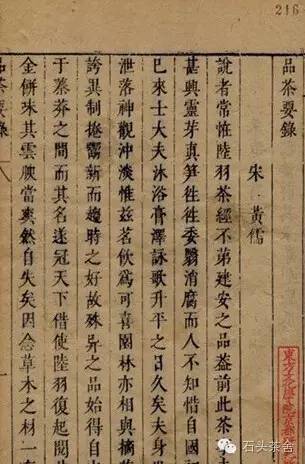 品茶要錄
宋 黃儒
說者常恠陸羽茶經不第建安之品葢前此茶事
甚興靈芽真笋徃徃委翳消腐而人不知惜自國
巳來士大夫沐浴膏澤詠歌升平之日久矣夫身
泄落神觀沖淡惟兹茗飲爲可喜園林亦相與摘
誇異制捲鬻新而趨時之好故殊异之品始得自
于蓁莽之間而其名遂冠天下借使陸羽復起閱
金餅味其雲腴當爽然自失矣因念草木之材一
品茶要錄
八
216
石头茶舍